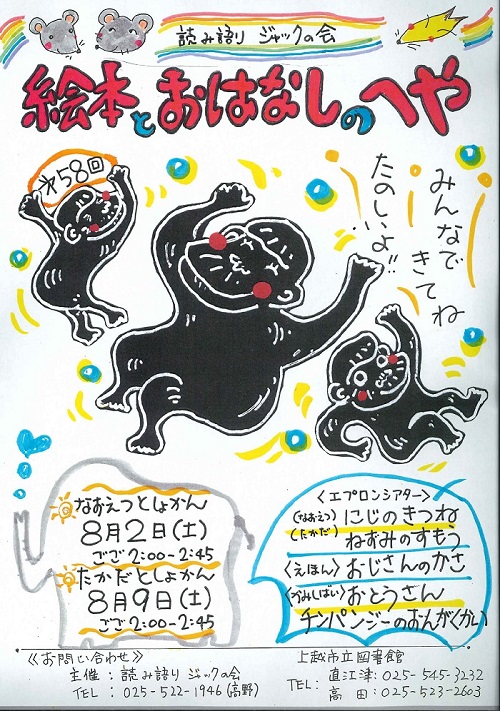 読み語り ジャックの会
絵本とおはなしのへや
第58回
みんなで
きてね
たのしいよ!!
なおえつとしょかん
8月2日(土)
ごご2:00-2:45
たかだとしょかん
8月9日(土)
ごご2:00-2:45
<エプロンシアター>
(なおえつ)にじのきつね
(たかだ)ねずみのすもう
<えほん>おじさんのかさ
<かみしばい>おとうさん
チンパンジーのおんがくかい
≪お問い合わせ≫
主催:読み語り ジャックの会
TEL:025-522-1946(高野)
上越市立図書館
TEL:直江津:025-545-3232
高田:025-523-2603